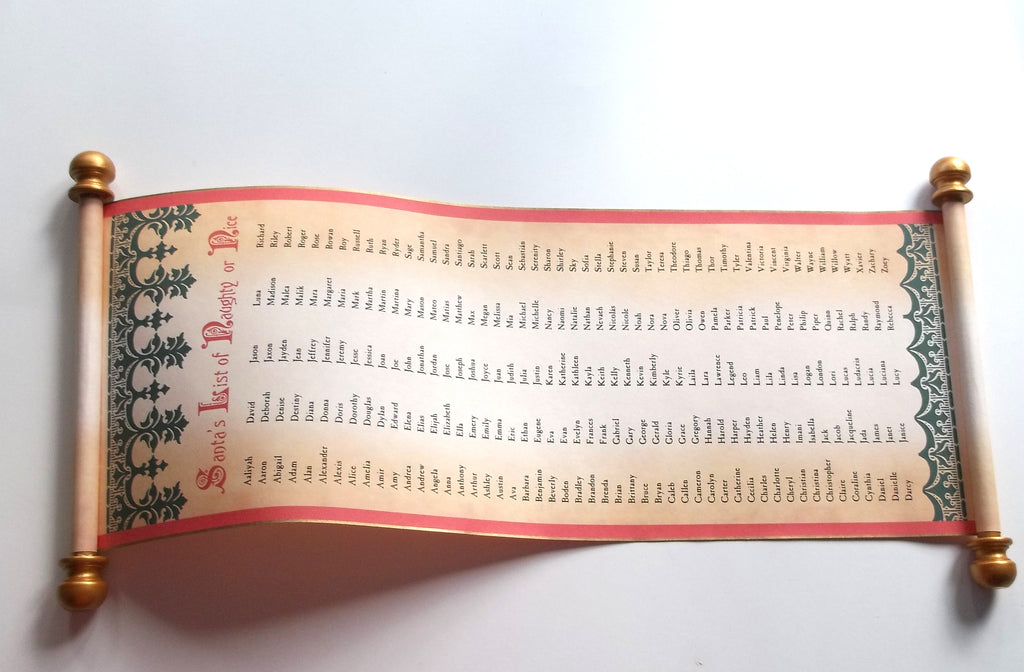 Santa's List of Naughty or Nice
Aaliyah
Aaron
Abigail
Adam
Alan
Alexander
Alexis
Alice
Amelia
Amir
Amy
Andrea
Andrew
Angela
Anna
Anthony
Arthur
Ashley
Austin
Ava
Barbara
Benjamin
Beverly
Boden
Bradley
Brandon
Brenda
Brian
Brittany
Bruce
Bryan
Caleb
Callen
Cameron
Carolyn
Carter
Catherine
Cecilia
Charles
Charlotte
Cheryl
Christian
Christina
Christopher
Claire
Coraline
Cynthia
Daniel
Danielle
Darcy
David
Deborah
Denise
Destiny
Diana
Donna
Doris
Dorothy
Douglas
Dylan
Edward
Elena
Elias
Elijah
Elizabeth
Ella
Emery
Emily
Emma
Eric
Ethan
Eugene
Eva
Evan
Evelyn
Frances
Frank
Gabriel
Gary
George
Gerald
Gloria
Grace
Gregory
Hannah
Harold
Harper
Hayden
Heather
Helen
Henry
Imani
Isabella
Jack
Jacob
Jacqueline
Jada
James
Janet
Janice
Jason
Jaxon
Jayden
Jean
Jeffrey
Jennifer
Jeremy
Jesse
Jessica
Joan
Joe
John
Jonathan
Jordan
Jose
Joseph
Joshua
Joyce
Juan
Judith
Julia
Justin
Karen
Katherine
Kathleen
Kayla
Keith
Kelly
Kenneth
Kevin
Kimberly
Kyle
Kyrie
Laila
Lara
Lawrence
Legend
Leo
Liam
Lila
Linda
Lisa
Logan
London
Lori
Lucas
Lucia
Luciana
Lucy
Luna
Madison
Malea
Malik
Mara
Margaret
Maria
Mark
Martha
Martin
Martina
Mary
Mason
Mateo
Matias
Matthew
Max
Megan
Melissa
Mia
Michael
Michelle
Nancy
Naomi
Natalie
Nathan
Nevaeh
Nicolas
Nicole
Noah
Nora
Nova
Oliver
Olivia
Owen
Pamela
Parker
Patricia
Patrick
Paul
Penelope
Peter
Philip
Piper
Quinn
Rachel
Ralph
Randy
Raymond
Rebecca
Richard
Riley
Robert
Roger
Rose
Rowan
Roy
Russell
Ruth
Ryan
Ryder
Sage
Samantha
Samuel
Sandra
Santiago
Sarah
Scarlett
Scott
Sean
Sebastian
Serenity
Sharon
Shirley
Sky
Sofia
Stella
Stephanie
Steven
Susan
Taylor
Teresa
Theodore
Thiago
Thomas
Thor
Timothy
Tyler
Valentina
Victoria
Vincent
Virginia
Walter
Wayne
William
Willow
Wyatt
Xavier
Zachary
Zoey